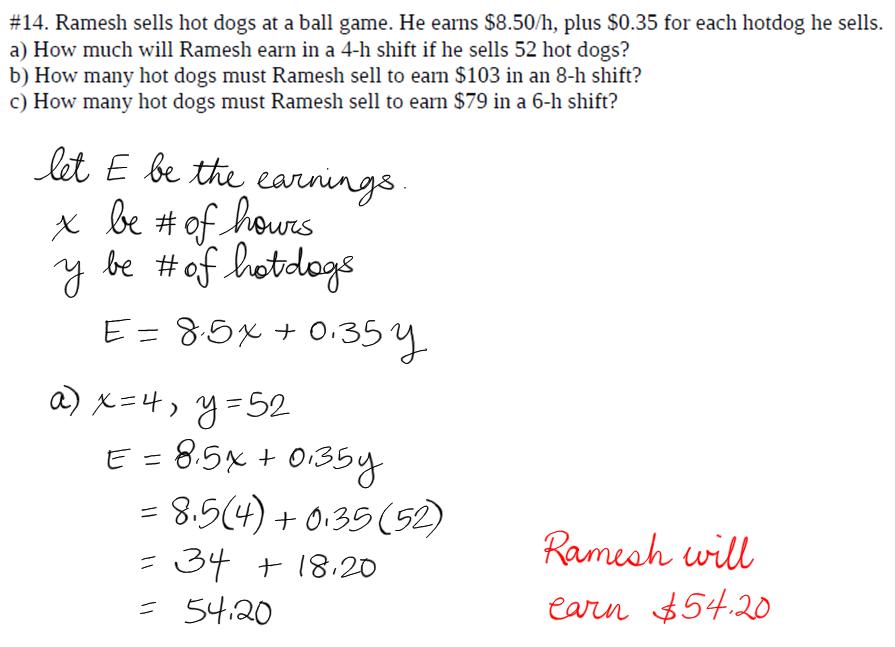 #14. Ramesh sells hot dogs at a ball game. He earns $8.50/h, plus $0.35 for each hotdog he sells.
a) How much will Ramesh earn in a 4-h shift if he sells 52 hot dogs?
b) How many hot dogs must Ramesh sell to earn $103 in an 8-h shift?
c) How many hot dogs must Ramesh sell to earn $79 in a 6-h shift?
let E be the earnings.
x be # of hours
y be # of hotdogs
E = 8.5x + 0.35y
a) x=4, y=52
E = 8.5x + 0.35y
= 8.5(4) + 0.35(52)
= 34 + 18.20
= 54.20
Ramesh will
earn $54.20